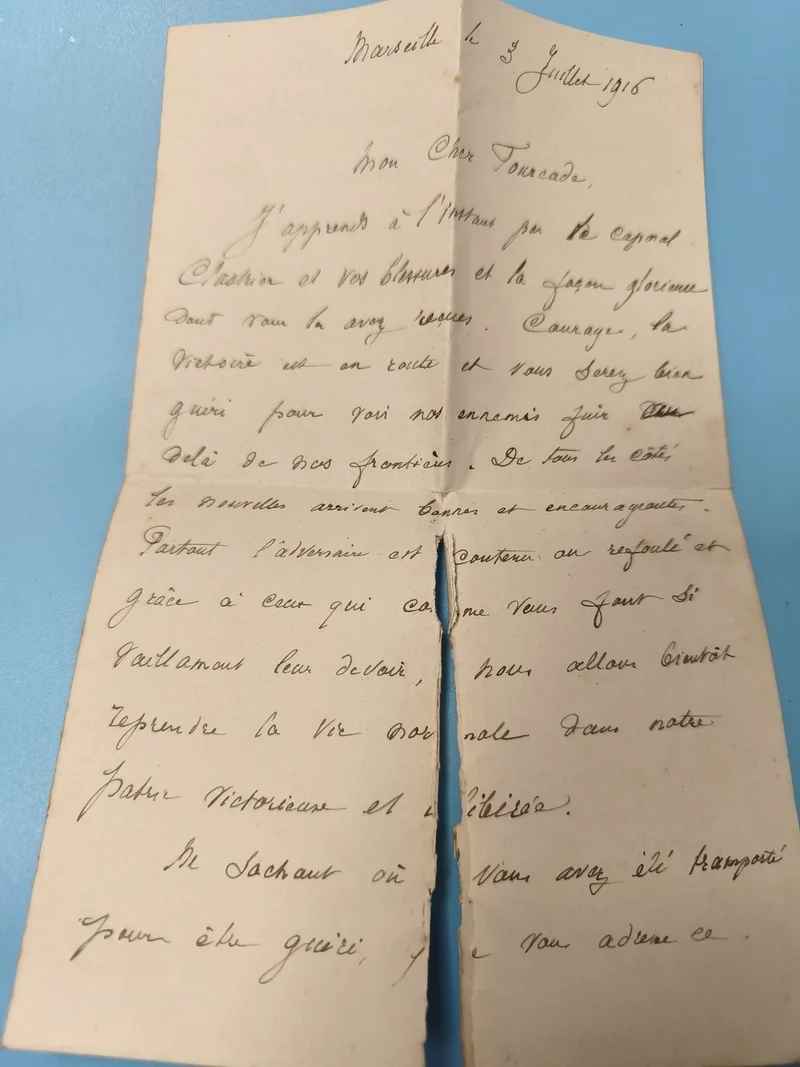 Marseille le 3 Juillet 1916
Mon Cher Fourcade,
J'apprends à l'instant par le caporal
Clastrier et vos blessures et la façon glorieuse
dont vous les avez reçues. Courage, la
Victoire est en route et vous serez bien
guéri pour voir nos ennemis fuir
delà de nos frontières. De tous les côtés
les nouvelles arrivent bonnes et encourageantes.
Partout l'adversaire est contenu ou refoulé et
grâce à ceux qui comme vous font si
vaillament leur devoir, nous allons bientôt
reprendre la vie normale dans notre
Patrie victorieuse et
Ne sachant où vous avez été transporté
pour être guéri, je vous adresse ce.